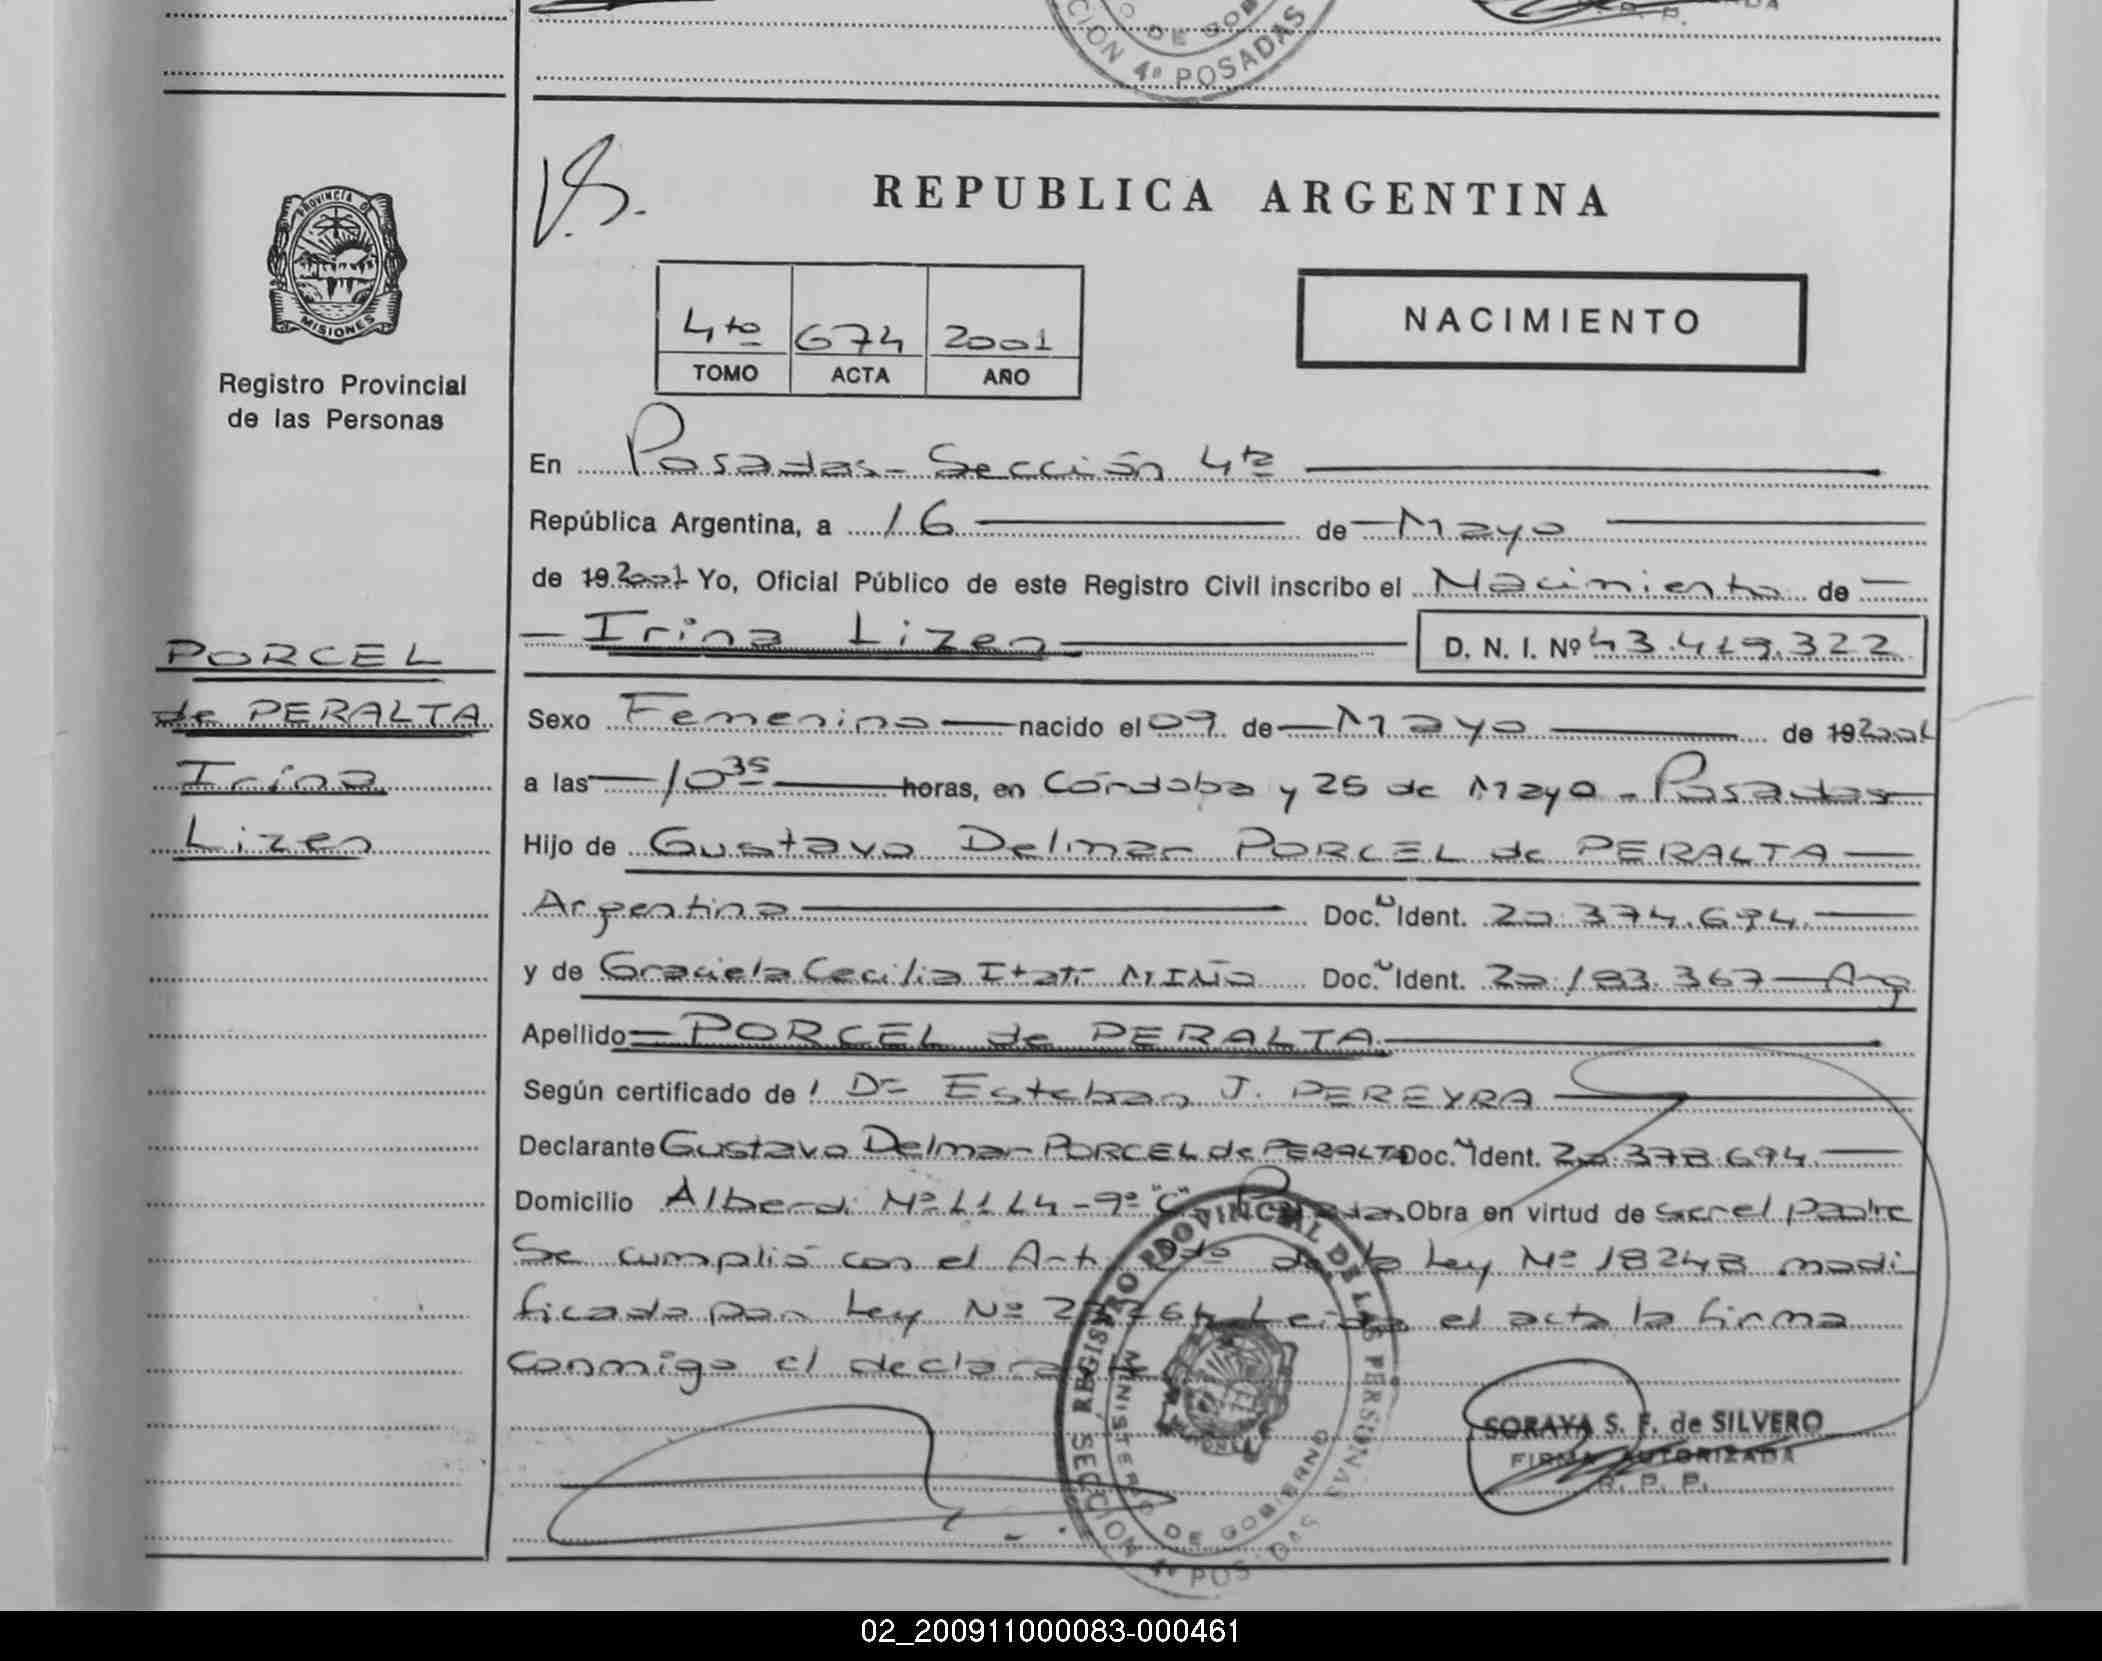 CION 4ª POSADAS
O DE GOB
R. P.
REPUBLICA ARGENTINA
PROVINCIA D
MISIONES
Registro Provincial
de las Personas
4to 674 2001
TOMO ACTA AÑO
NACIMIENTO
En Posadas - Sección 4ta
República Argentina, a 16 de Mayo
de 19 2001 Yo, Oficial Público de este Registro Civil inscribo el Nacimiento de
Irina Lizen D. N. I. Nº 43.419.322
PORCEL
de PERALTA
Irina
Lizen
Sexo Femenino nacido el 09 de Mayo de 19 2001
a las 10 35 horas, en Córdoba y 25 de Mayo - Posadas
Hijo de Gustavo Delmar PORCEL de PERALTA
Argentina Doc. Ident. 20.374.694.
y de Graciela Cecilia Itatí MIÑO Doc. Ident. 20.183.367 - Arg
Apellido PORCEL de PERALTA
Según certificado de Dr Esteban J. PEREYRA
Declarante Gustavo Delmar PORCEL de PERALTA Doc. Ident. 20.378.694.
Domicilio Alberdi Nº 1114 - 9º "C" Obra en virtud de ser el padre
Se cumplió con el Art. de la Ley Nº 18248 modi
ficada por Ley Nº Leida el acta la firma
conmigo el
REGISTRO PROVINCIAL DE LAS PERSONAS
MINISTERIO DE GOBIERNO
SECCION 4ª POSADAS
SORAYA S. F. de SILVERO
FIRMA AUTORIZADA
R. P. P.
02_200911000083-000461